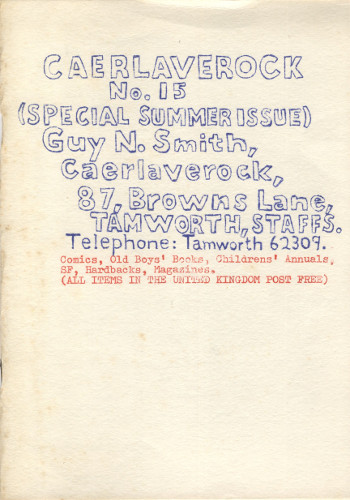 CAERLAVEROCK
No. 15
(SPECIAL SUMMER ISSUE)
Guy N. Smith,
Caerlaverock,
87, Browns Lane,
TAMWORTH, STAFFS.
Telephone: Tamworth 62309.
Comics, Old Boys' Books, Childrens' Annuals,
SF, Hardbacks, Magazines.
(ALL ITEMS IN THE UNITED KINGDOM POST FREE)